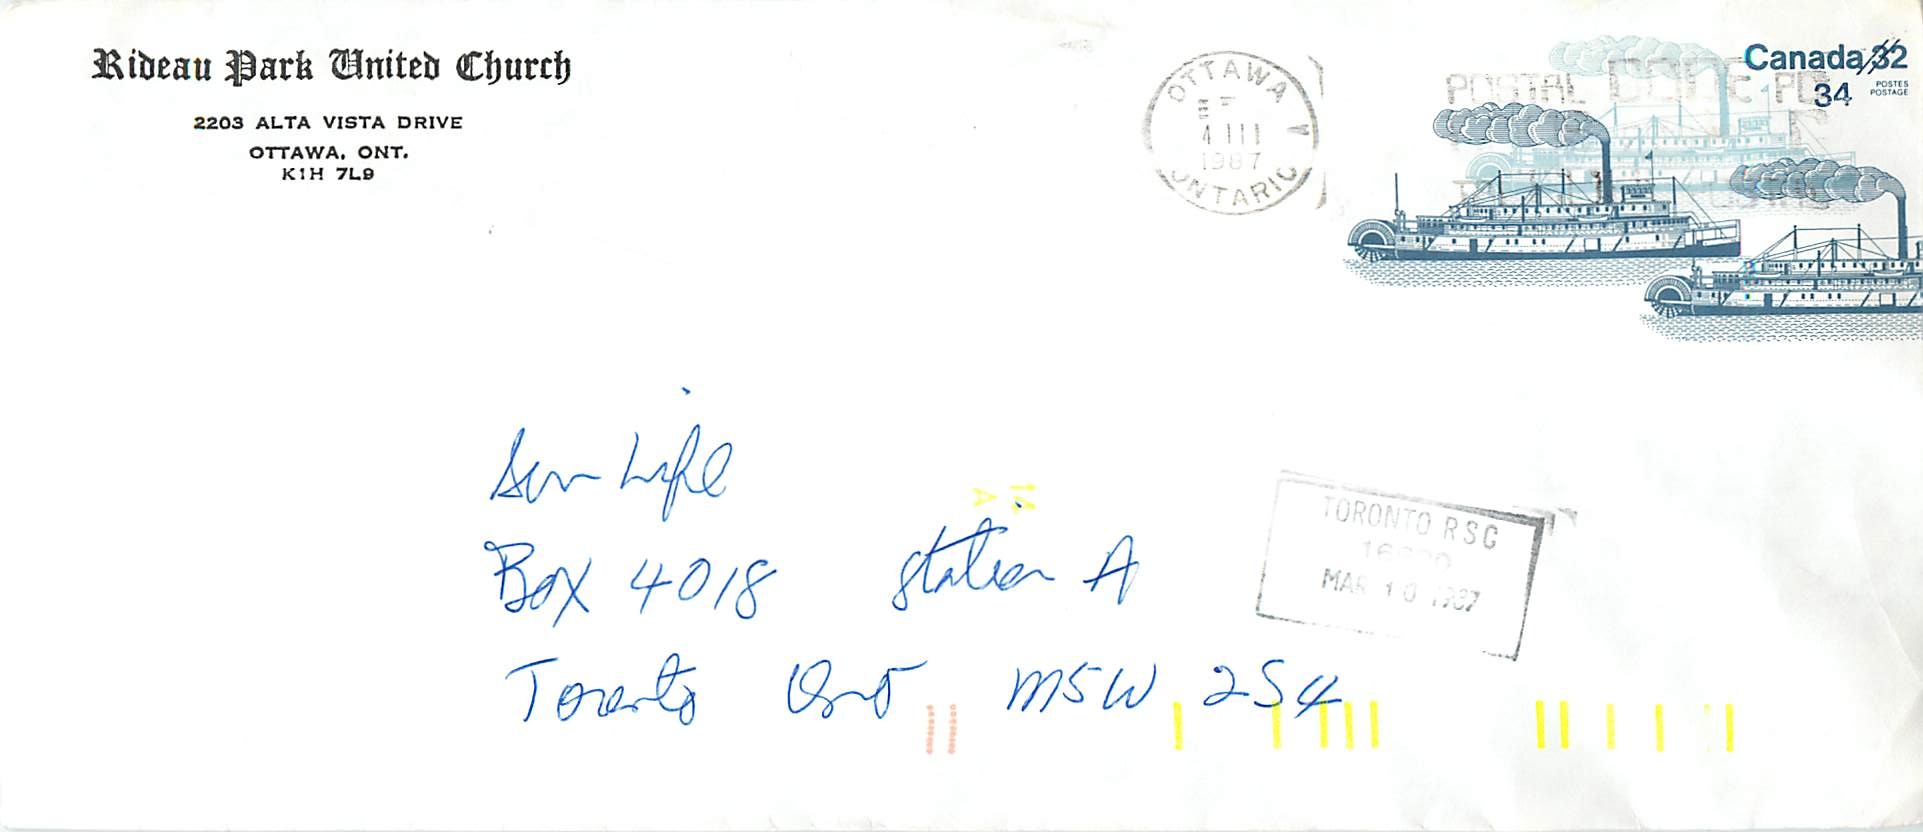 Rideau Park United Church
2203 ALTA VISTA DRIVE
OTTAWA, ONT.
K1H 7L9
OTTAWA
4 III
1987
ONTARIO
POSTAL CODE
Canada 32
34
POSTES
POSTAGE
Sun Life
Box 4018 Station A
Toronto Ont M5W 2S4
14
A
TORONTO RSG
MAR 10 1987